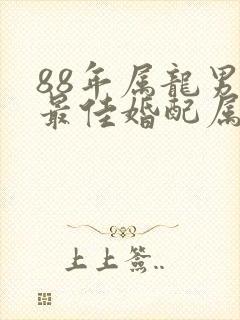 88年属龍男
最佳婚配属
上上签..